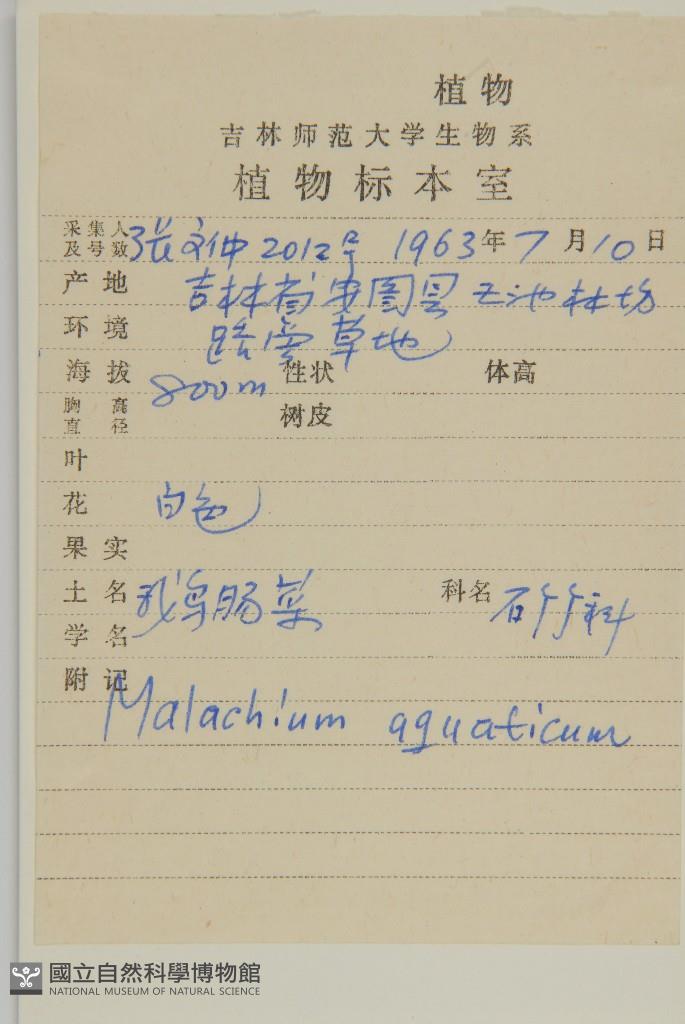 植物
吉林师范大学生物系
植物标本室
采集人及号数 张文仲 2012号 1963年7月10日
产地 吉林省安图县 王池林场
环境 路旁草地
海拔 800m 性状 体高
胸高直径 树皮
叶
花 白色
果实
土名 鹅肠菜 科名 石竹科
学名
附记
Malachium aquaticum
國立自然科學博物館
NATIONAL MUSEUM OF NATURAL SCIENCE